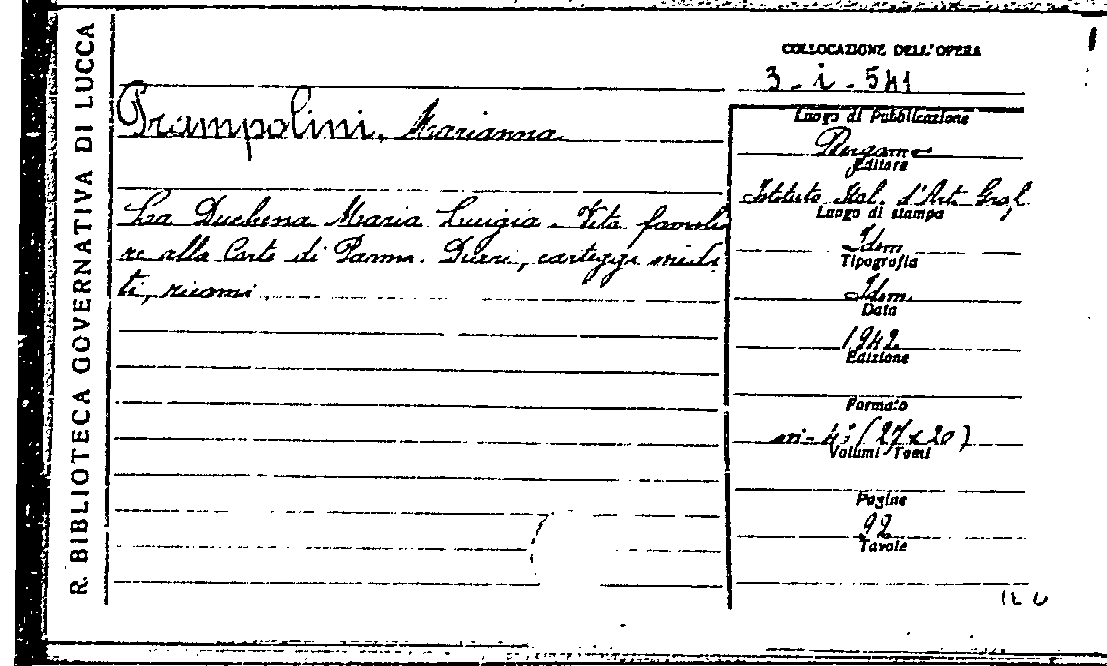 R. BIBLIOTECA GOVERNATIVA DI LUCCA
COLLOCAZIONE DELL'OPERA
3 - i - 541
Prampolini, Marianna
La Duchessa Maria Luigia - Vita familia
re alla Corte di Parma. Diari, carteggi inedi
ti, ricami
Luogo di Pubblicazione
Bergamo
Editore
Istituto Ital. d'Arti Graf.
Luogo di stampa
Idem
Tipografia
Idem
Data
1942
Edizione
Formato
in-4° (27x20)
Volumi Tomi
Pagine
92
Tavole